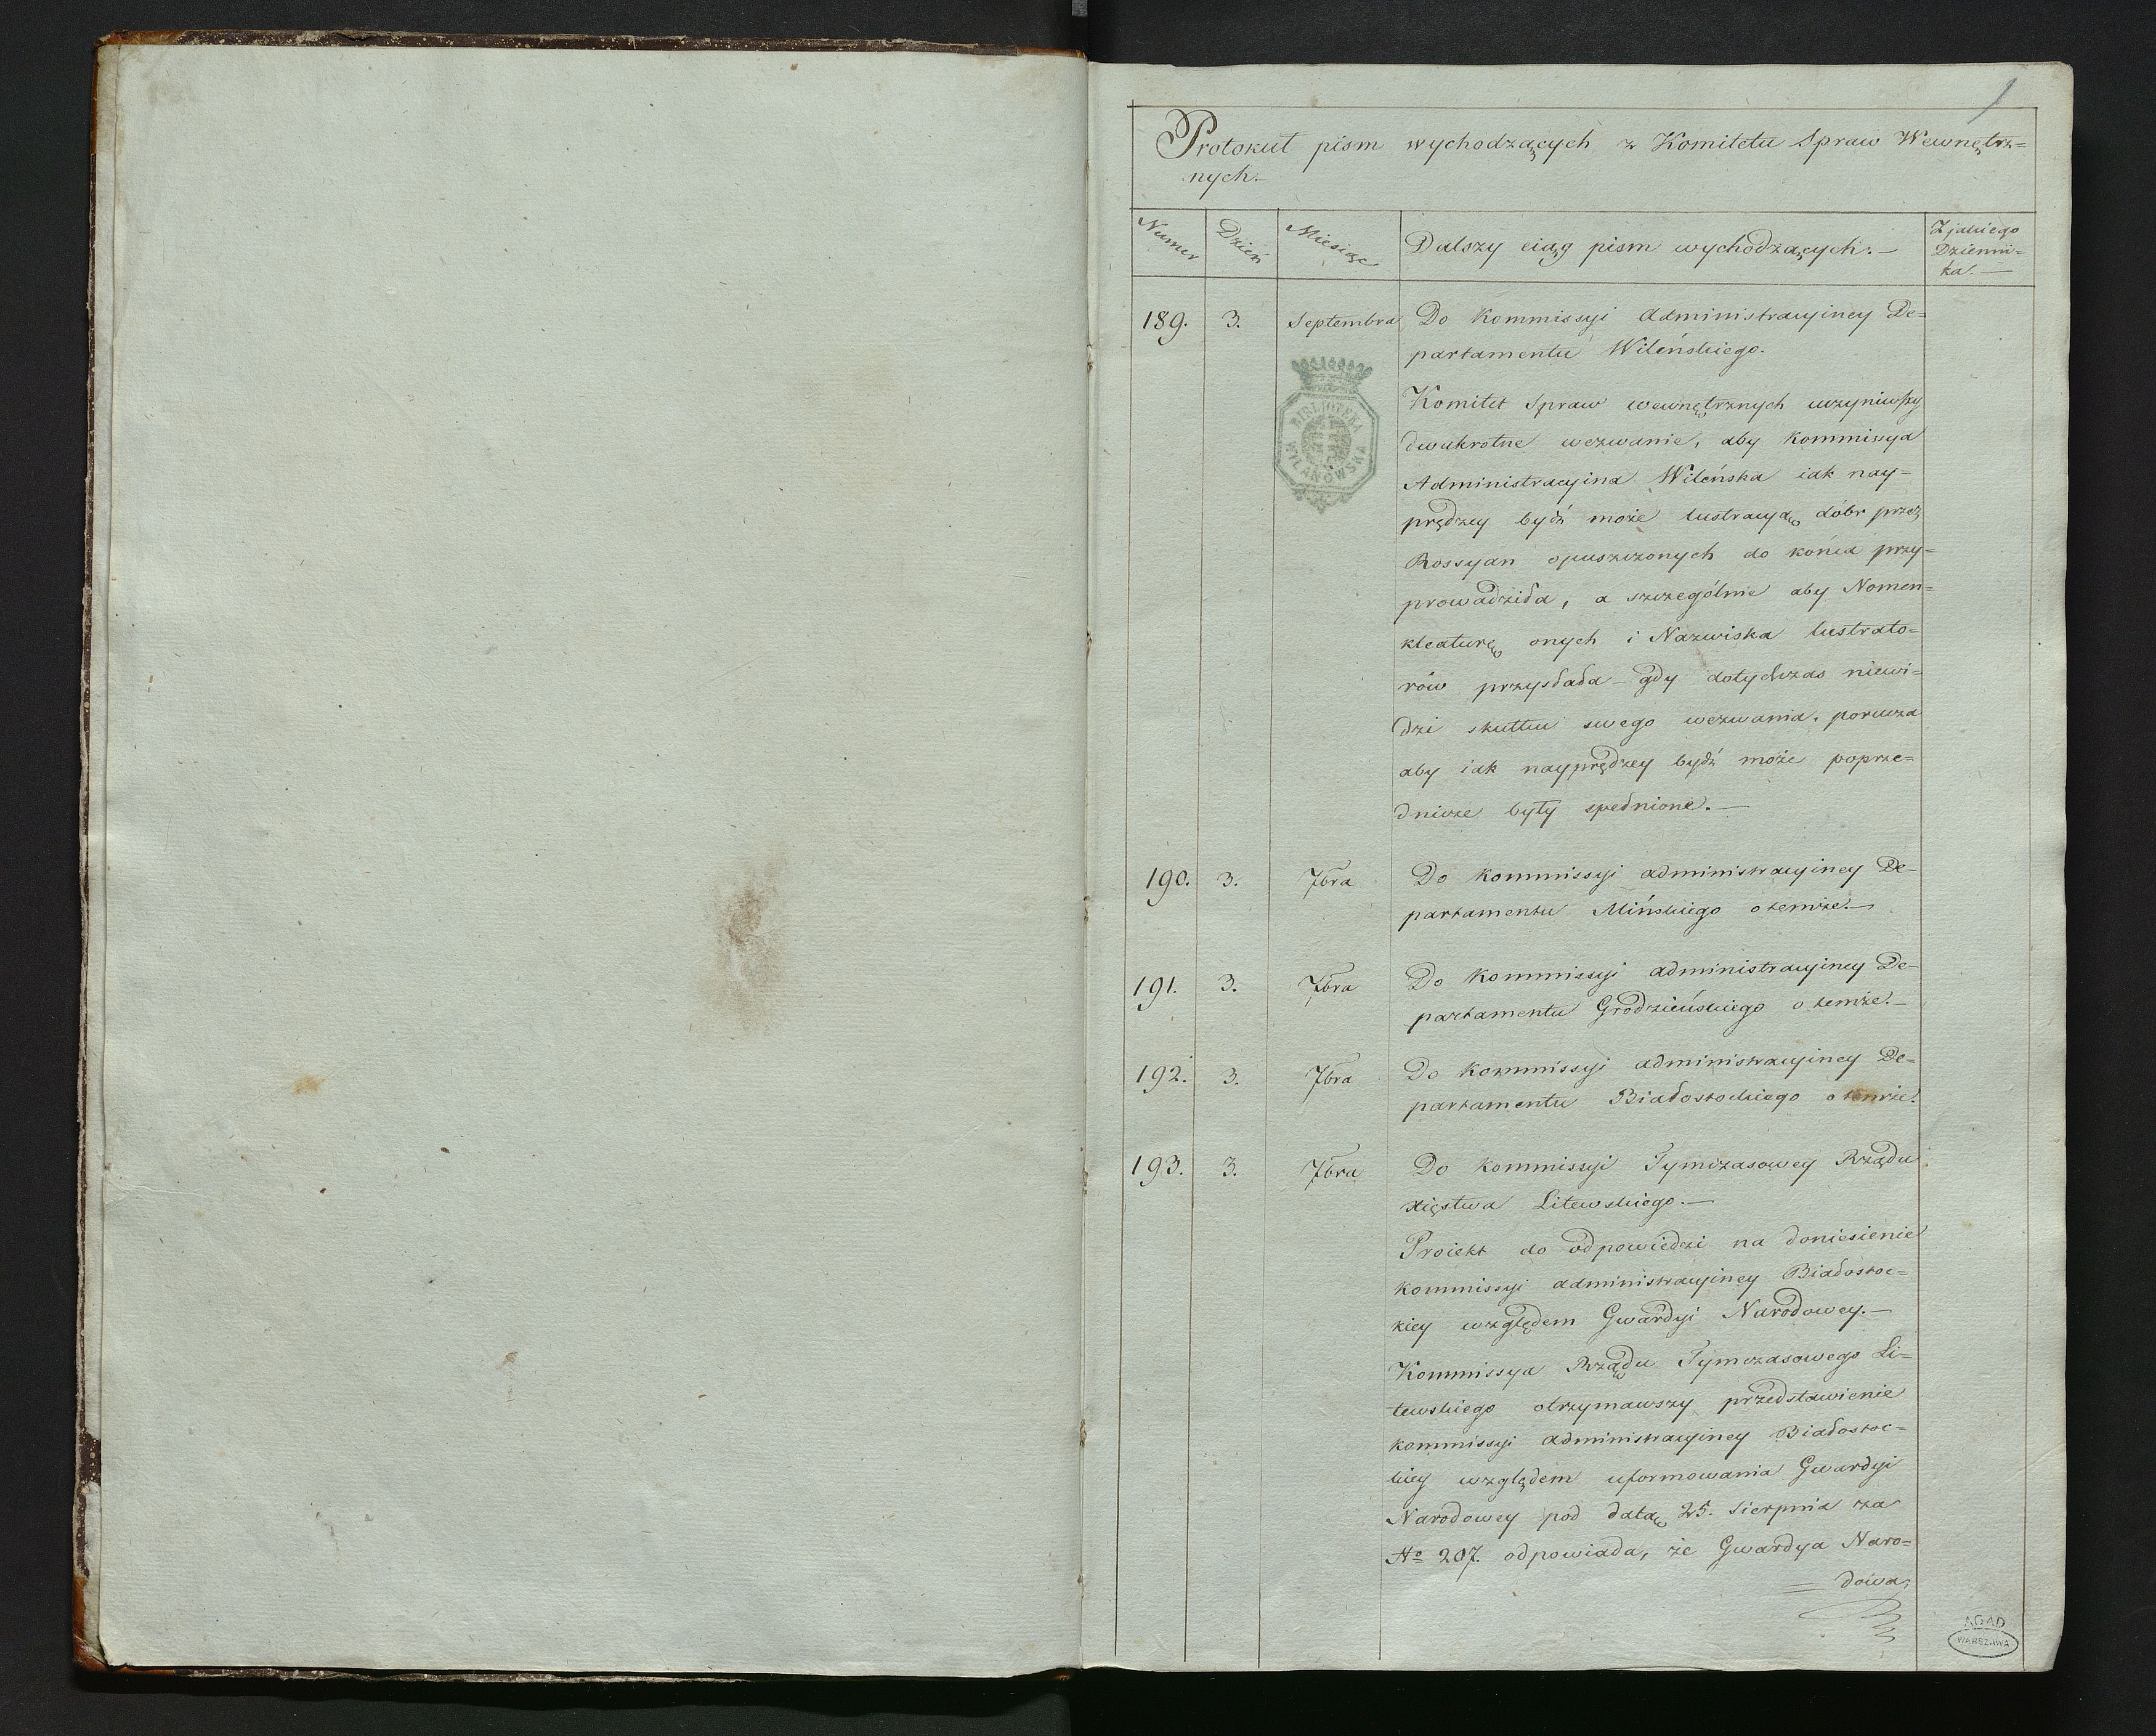 1
Protokuł pism wychodzących z Komitetu Spraw Wewnętrz=
nych.
Numer Dzień Miesiąc Dalszy ciąg pism wychodzących. — Z jakiego
Dzienni=
ka. —
189. 3. Septembra Do Kommissyi Administracyiney De=
partamentu Wileńskiego.
BIBLIOTEKA
WILANOWSKA
Komitet Spraw wewnętrznych uczyniwszy
dwukrotne wezwanie, aby Kommissya
Administracyina Wileńska iak nay=
prędzey bydź może lustracyą dóbr przez
Rossyan opuszczonych do końca przy=
prowadziła, a szczególnie aby Nomen=
klaturę onych i Nazwiska lustrato=
rów przysłała — gdy dotychczas niewi=
dzi skutku swego wezwania, porucza
aby iak nayprędzey bydź może poprze=
dnicze były spełnione. —
190. 3. 7bra Do Kommissyi administracyiney De=
partamentu Mińskiego o temże. —
191. 3. 7bra Do Kommissyi administracyiney De=
partamentu Grodzieńskiego o temże. —
192. 3. 7bra Do Kommissyi administracyiney De=
partamentu Białostockiego o temże.
193. 3. 7bra Do Kommissyi Tymczasowey Rządu
xięstwa Litewskiego. —
Proiekt do odpowiedzi na doniesienie
Kommissyi administracyiney Białostoc=
kiey względem Gwardyi Narodowey. —
Kommissya Rządu Tymczasowego Li=
tewskiego otrzymawszy przedstawienie
Kommissyi administracyiney Białostoc=
kiey względem uformowania Gwardyi
Narodowey pod datą 25. Sierpnia za
No 207. odpowiada, że Gwardya Naro=
= dowa,
AGAD
WARSZAWA